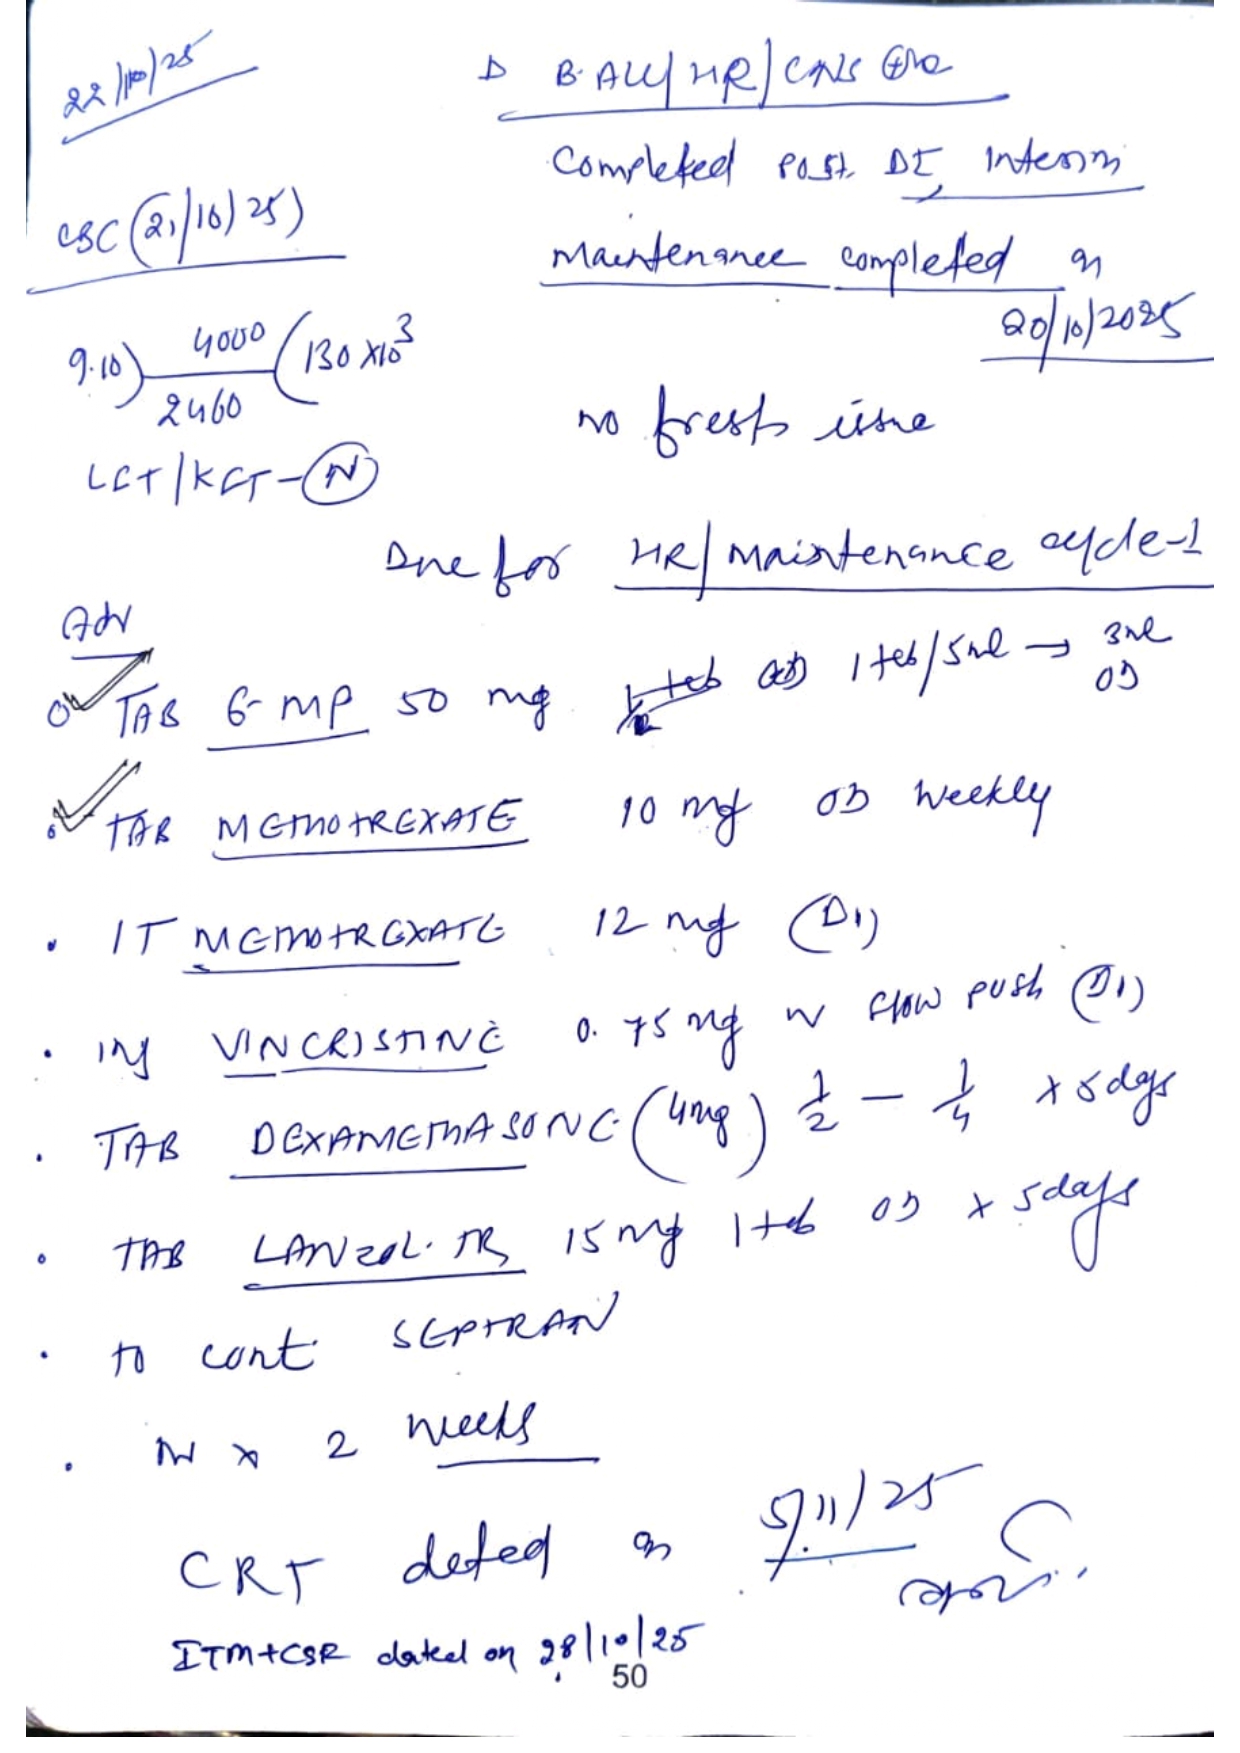 22/10/25
D B-ALL/HR/CNS +ve
Completed Post DI Interim
maintenance completed on
20/10/2025
CBC (21/10/25)
9.10) 4000 / 2460 (130 x10³
LFT/KFT - N
no fresh issue
Due for HR/maintenance cycle-1
Adv
TAB 6-MP 50 mg 1 tab/5ml → 3ml OD
TAB METHOTREXATE 10 mg OD weekly
IT METHOTREXATE 12 mg (D1)
inj VINCRISTINE 0.75 mg IV slow push (D1)
TAB DEXAMETHASONE (4mg) 1/2 - 1/4 x 5 days
TAB LANZOL JR 15 mg 1 tab OD x 5 days
to cont SEPTRAN
x 2 weeks
CRT dated on 5/11/25
ITM+CSR dated on 28/10/25
50